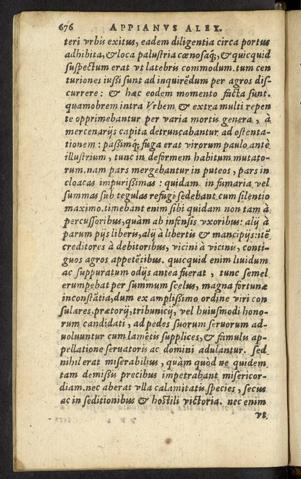 676 APPIANVS ALEX.
teri vrbis exitus, eadem diligentia circa portus
adhibita, & loca palustria cœnosaq;, & quicquid
suspectum erat vt latebris commodum. tum cen
turiones iussi sunt ad inquirēdum per agros dis-
currere: & hæc eodem momento fūcta sunt.
quamobrem intra Vrbem & extra multi repen
te opprimebantur per varia mortis genera, à
mercenarijs capita detruncabantur ad ostenta-
tionem: passimq; fuga erat virorum paulo antè
illustrium, tunc in deformem habitum mutato-
rum. nam pars mergebantur in puteos, pars in
cloacas impurissimas: quidam in fumaria vel
summas sub tegulas refugi sedebant cum silentio
maximo. timebant enim sibi quidam non tam à
percussoribus, quàm ab infensis vxoribus: alij à
parum pijs liberis, alij à libertis & mancipijs: itē
creditores à debitoribus, vicini à vicinis, conti-
guos agros appetētibus. quicquid enim liuidum
ac suppuratum odijs antea fuerat, tunc semel
erumpebat per summum scelus, magna fortunæ
inconstātia, dum ex amplissimo ordine viri con
sulares, prætorij, tribunicij, vel huiusmodi hono-
rum candidati, ad pedes suorum seruorum ad-
uoluuntur cum lamētis supplices, & famulis ap-
pellatione seruatoris ac domini adulantur. Sed
nihil erat miserabilius, quàm quòd ne quidem
tam demissis precibus impetrabant misericor-
diam. nec aberat vlla calamitatis species, secus
ac in seditionibus & hostili victoria. nec enim
vs.